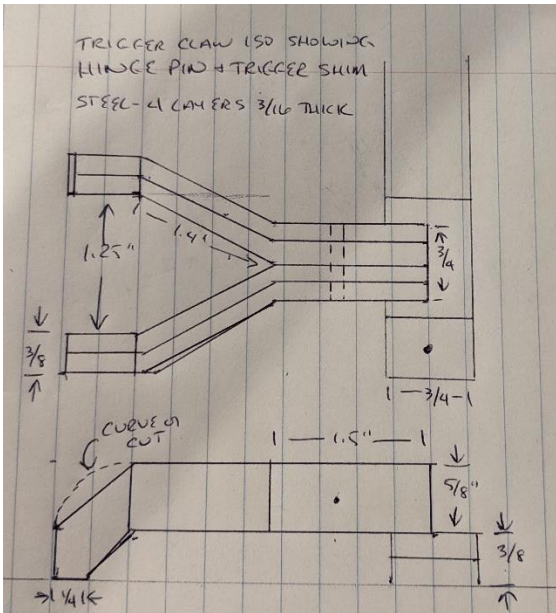 TRIGGER CLAW ISO SHOWING
HINGE PIN + TRIGGER SHIM
STEEL - 4 LAYERS 3/16 THICK
1.25"
1.4"
3/4
3/8
3/4
CURVE
CUT
1.5"
5/8"
3/8
1/4